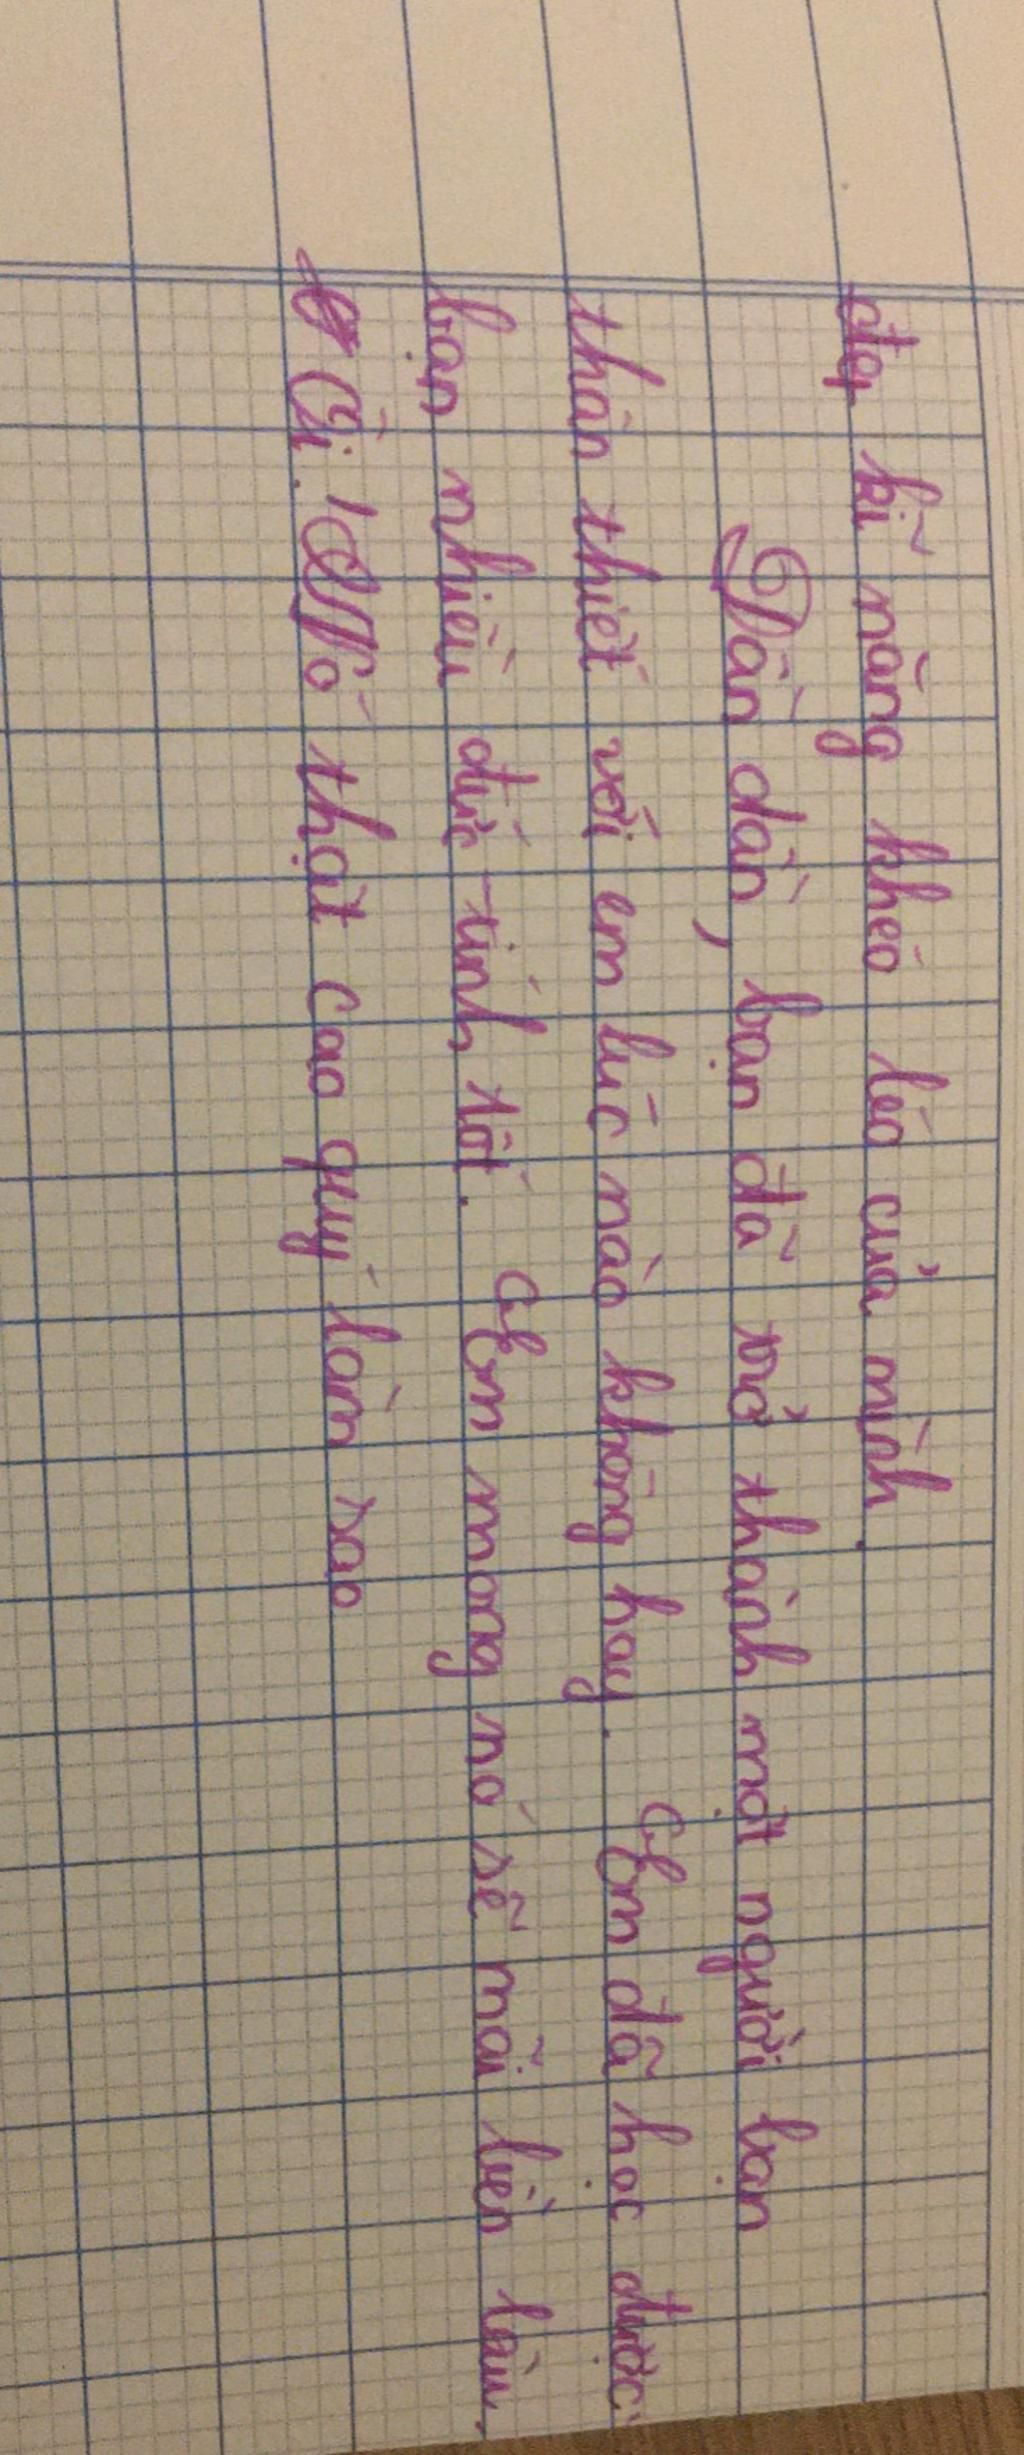 đẹp kĩ năng khéo léo của mình.
Dần dần, bạn đã trở thành một người bạn
thân thiết với em lúc nào không hay. Em đã học được
bạn nhiều đức tính tốt. Em mong nó sẽ mãi bền lâu.
Ôi! Nó thật cao quý làm sao